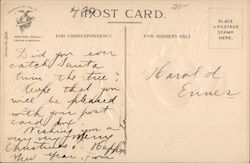 20-
POST CARD.
FOR CORRESPONDENCE
FOR ADDRESS ONLY
PLACE
A POSTAGE
STAMP
HERE.
Did you ever
catch Santa
trim the tree?
Hope that you
will be pleased
with your post
card box
Wishing you a
very very Merry
Christmas & Happy
New Year,
Harold
Ennes